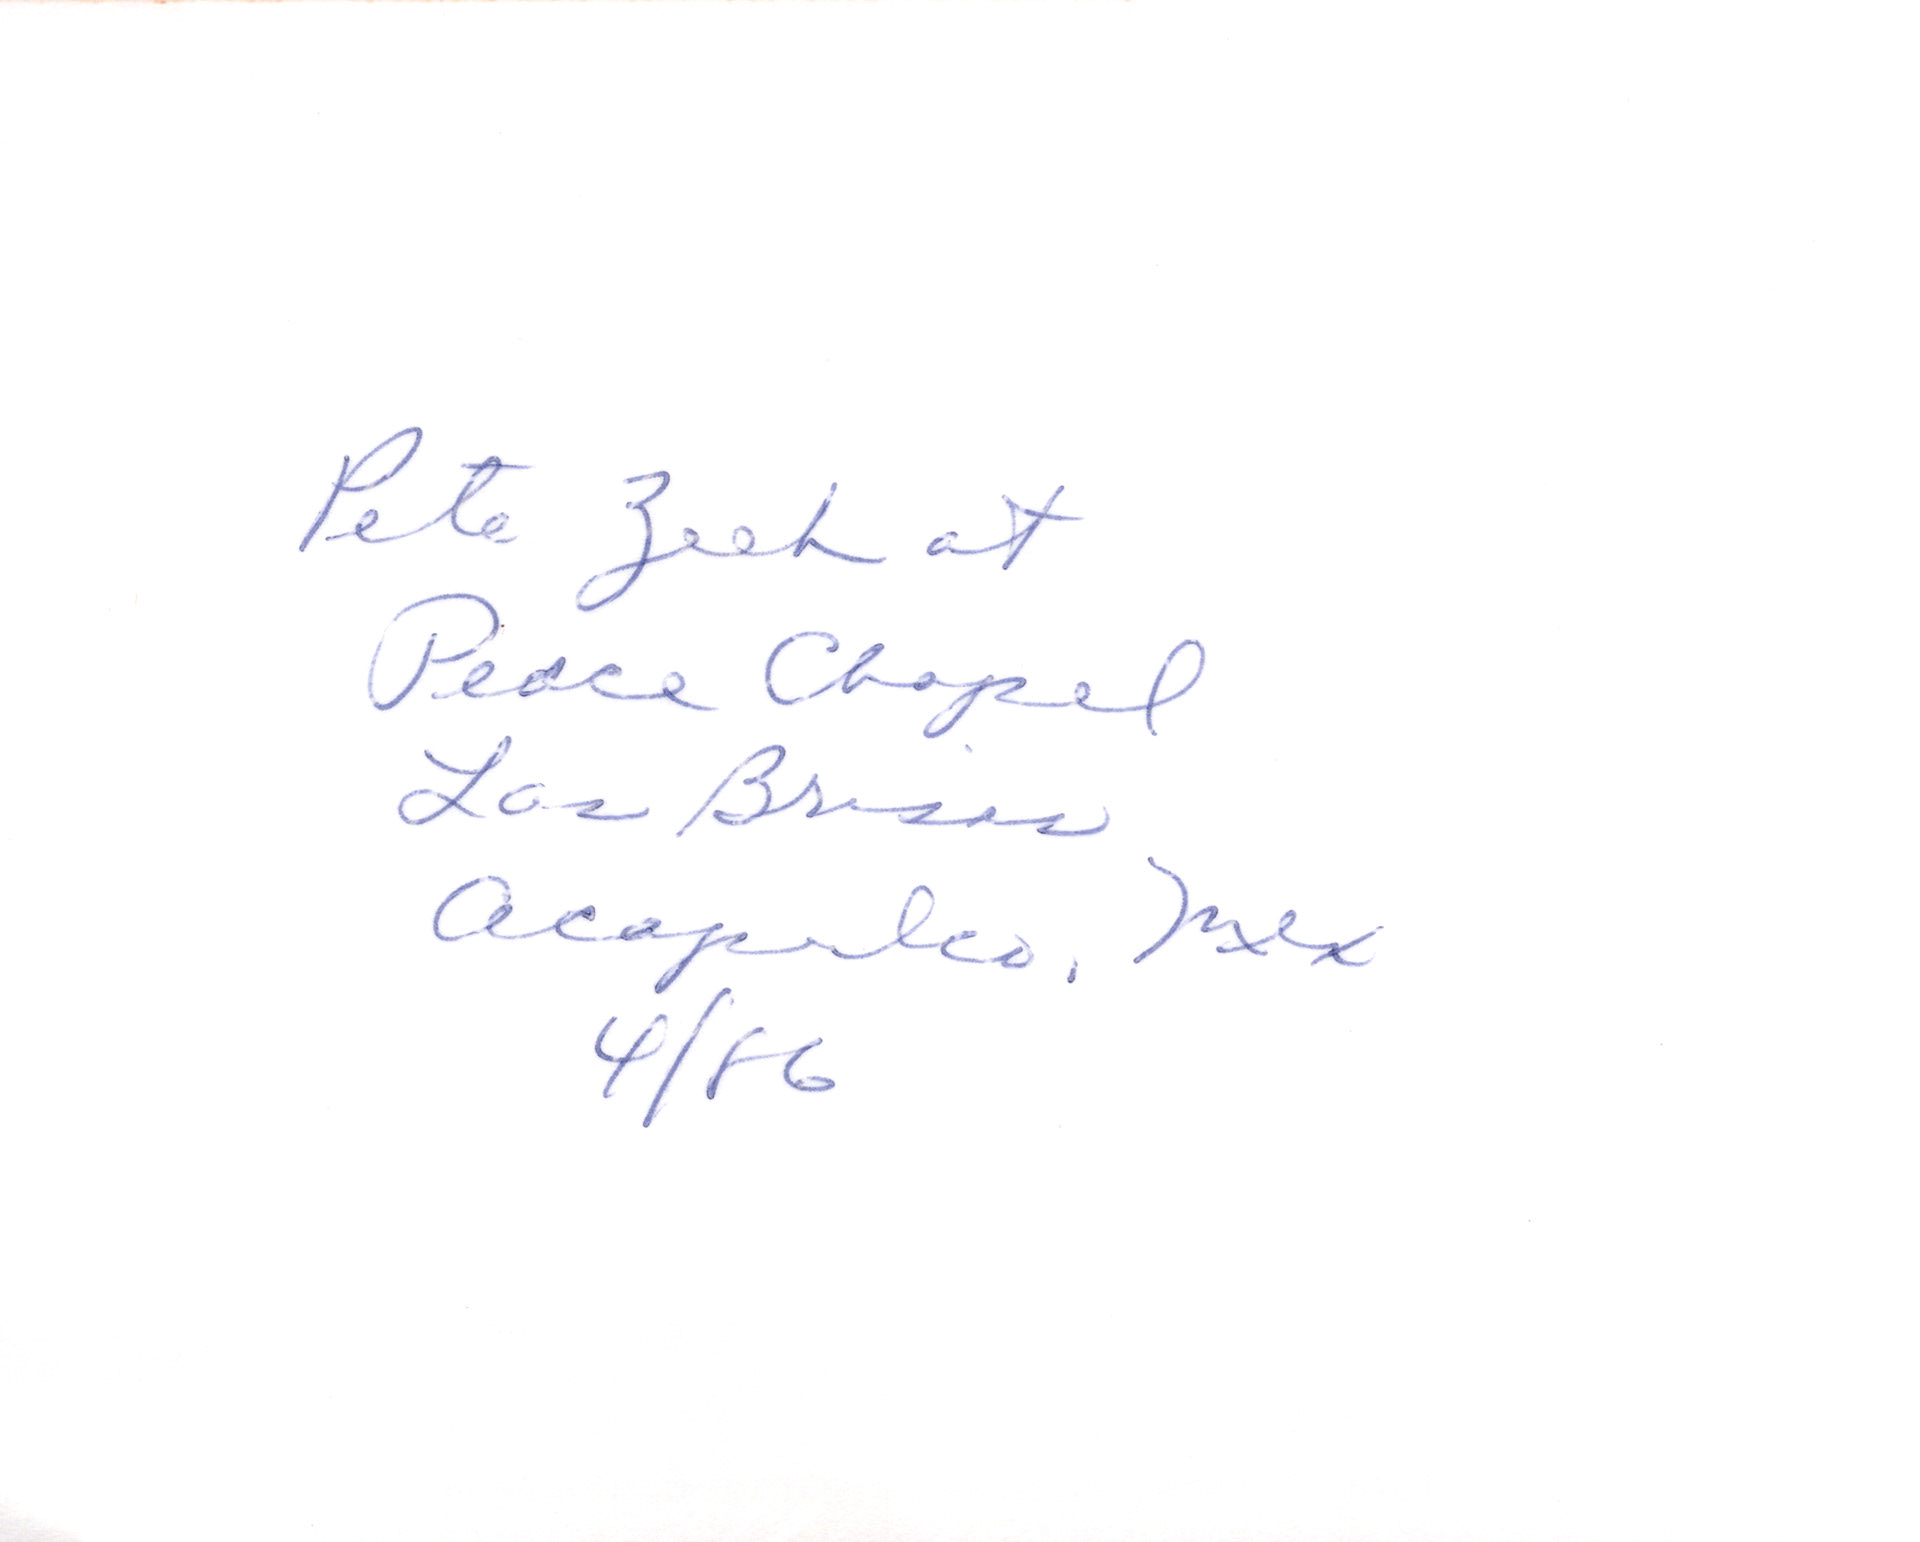 Pete Zeeh at
Peace Chapel
Las Brisas
Acapulco, Mex
4/86